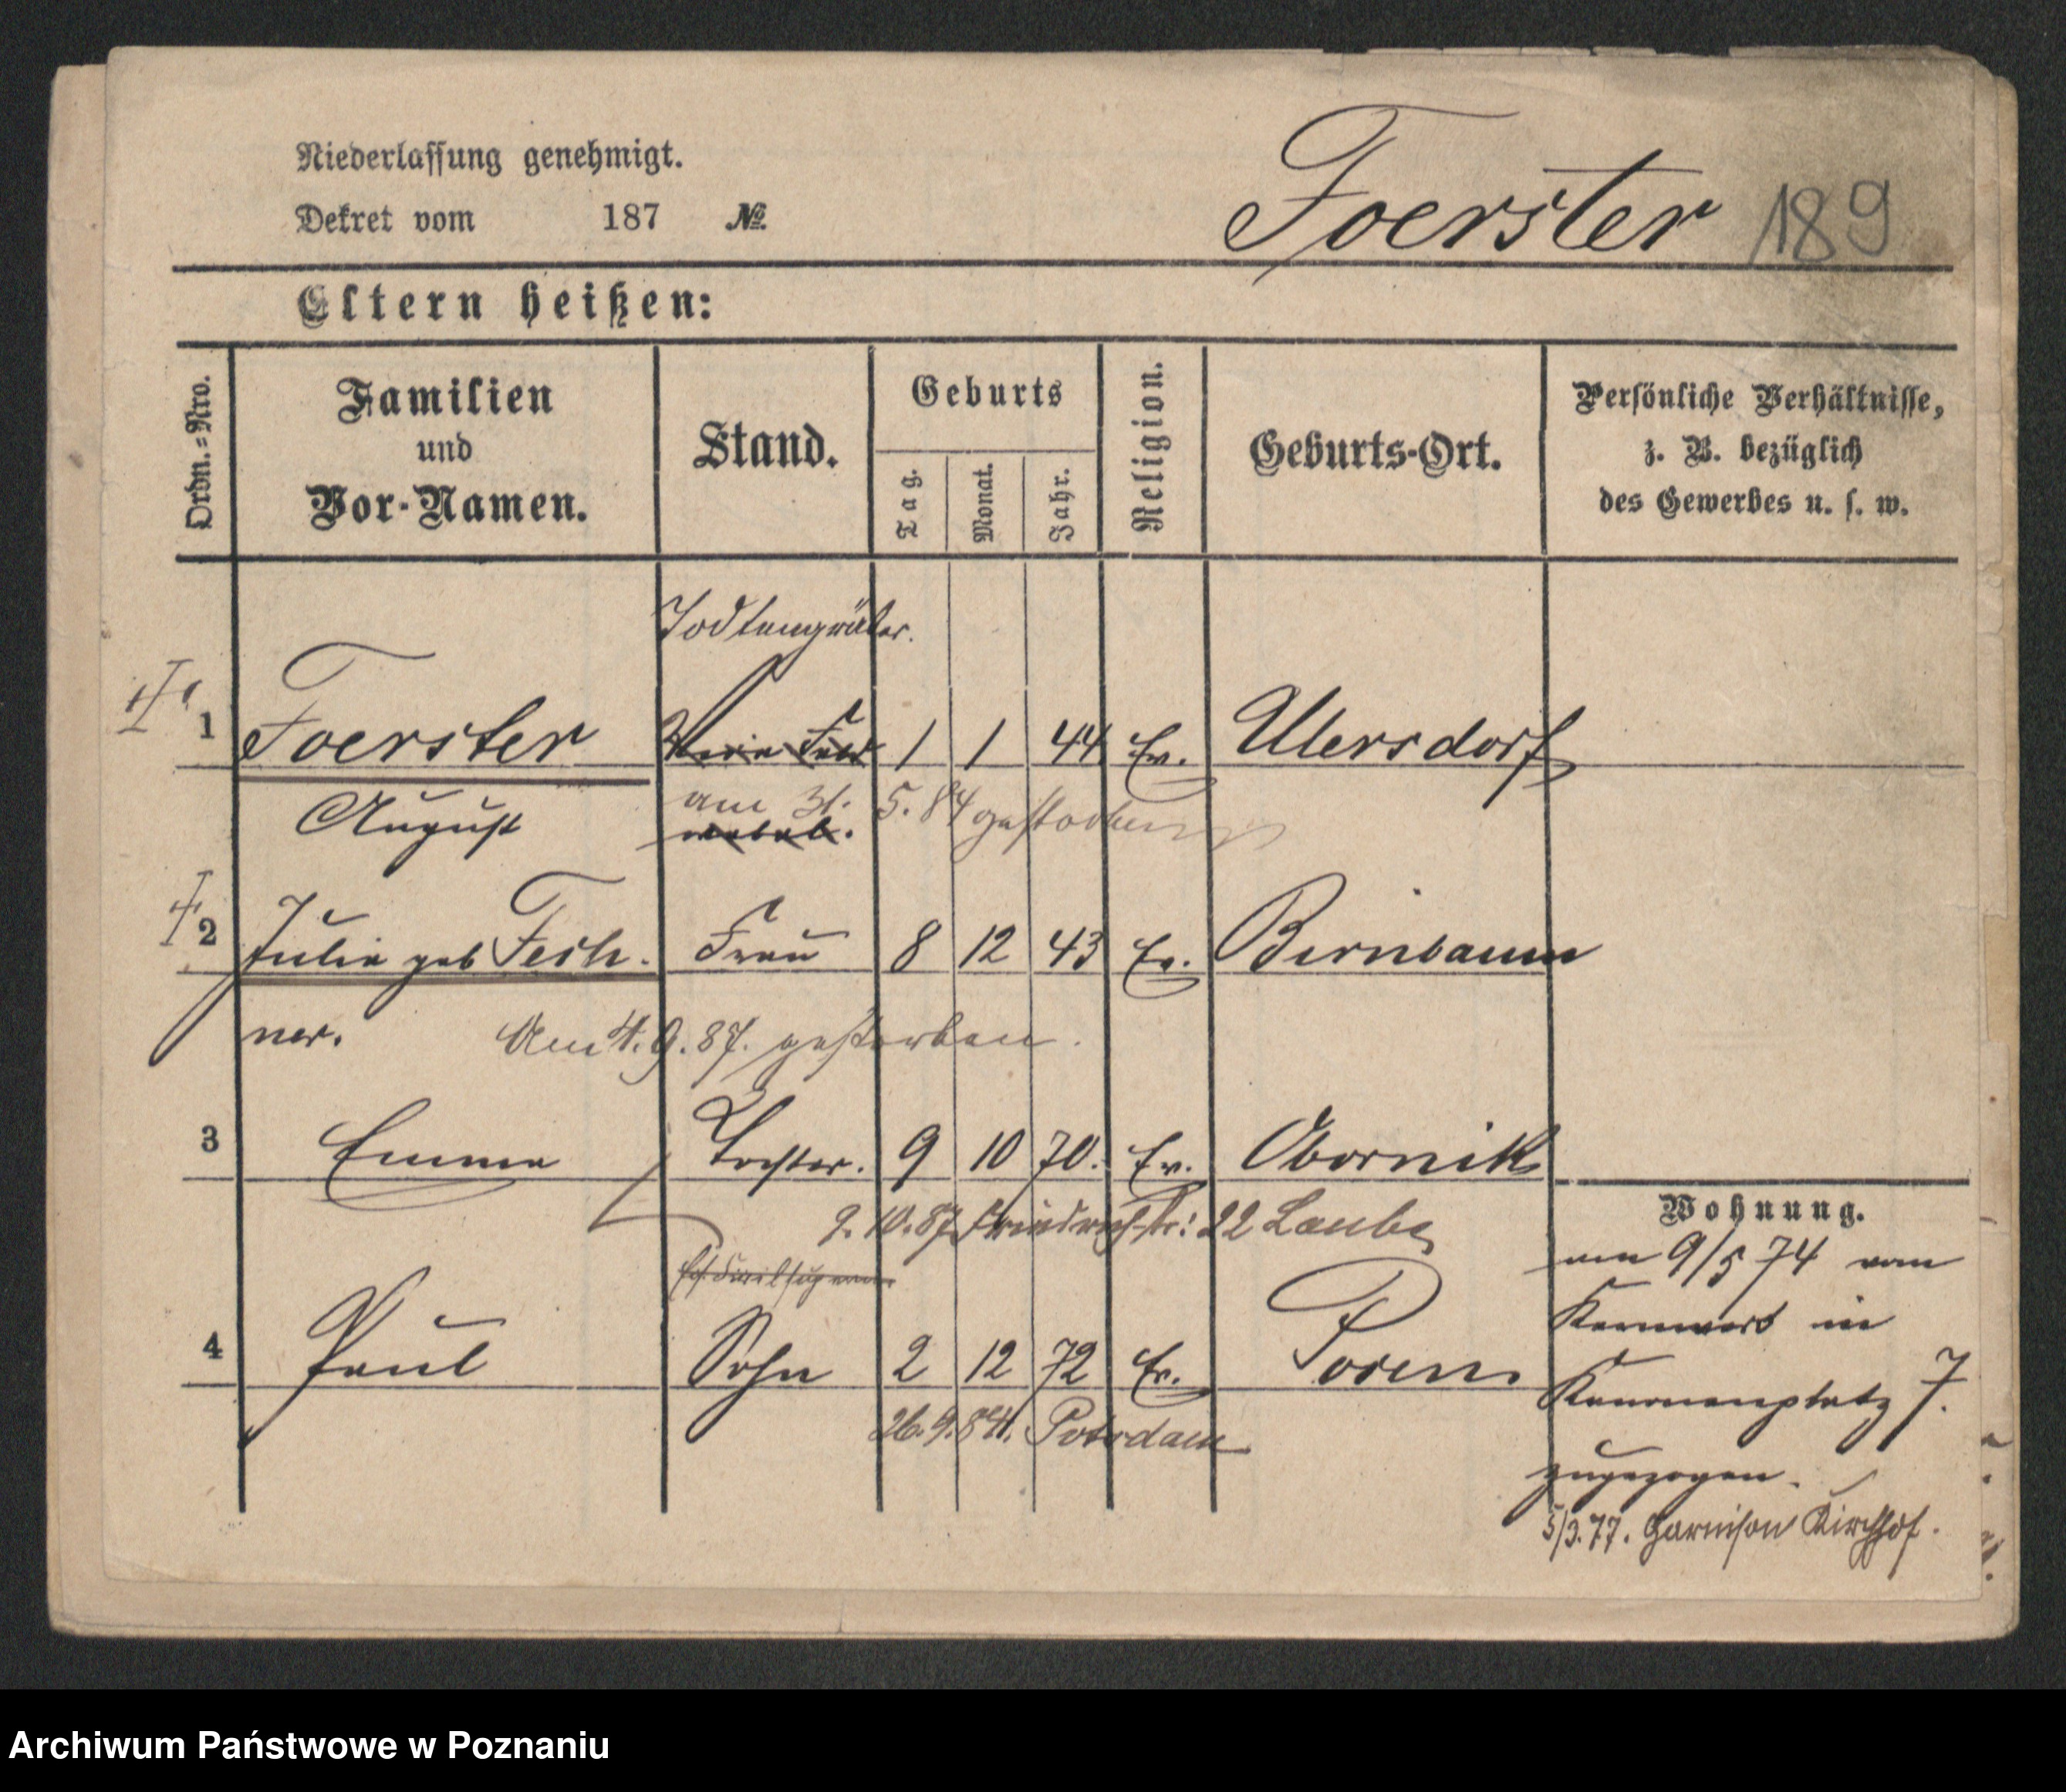 Niederlassung genehmigt.
Dekret vom 187 №
Foerster 189
Eltern heißen:
Ordn.-Nro.
Familien
und
Vor-Namen.
Stand.
Geburts
Tag.
Monat.
Jahr.
Religion.
Geburts-Ort.
Persönliche Verhältnisse,
z. B. bezüglich
des Gewerbes u. s. w.
Todtengräber.
1 Foerster 1 1 44 Ev. Ullersdorf
August
am 31. 5. 84 gestorben
2 Julie geb Fech- Frau 8 12 43 Ev. Birnbaum
ner. Am 4. 9. 87. gestorben.
3 Emma Tochter. 9 10 70. Ev. Obornik
9. 10. 87 Friedrich-Str: 22 Laube
4 Paul Sohn 2 12 72 Ev. Posen
26. 9. 84. Potsdam
Wohnung.
am 9/5 74 von
in
Kanonenplatz 7.
zugezogen.
5/3. 77. Garnison Kirchhof.
Archiwum Państwowe w Poznaniu